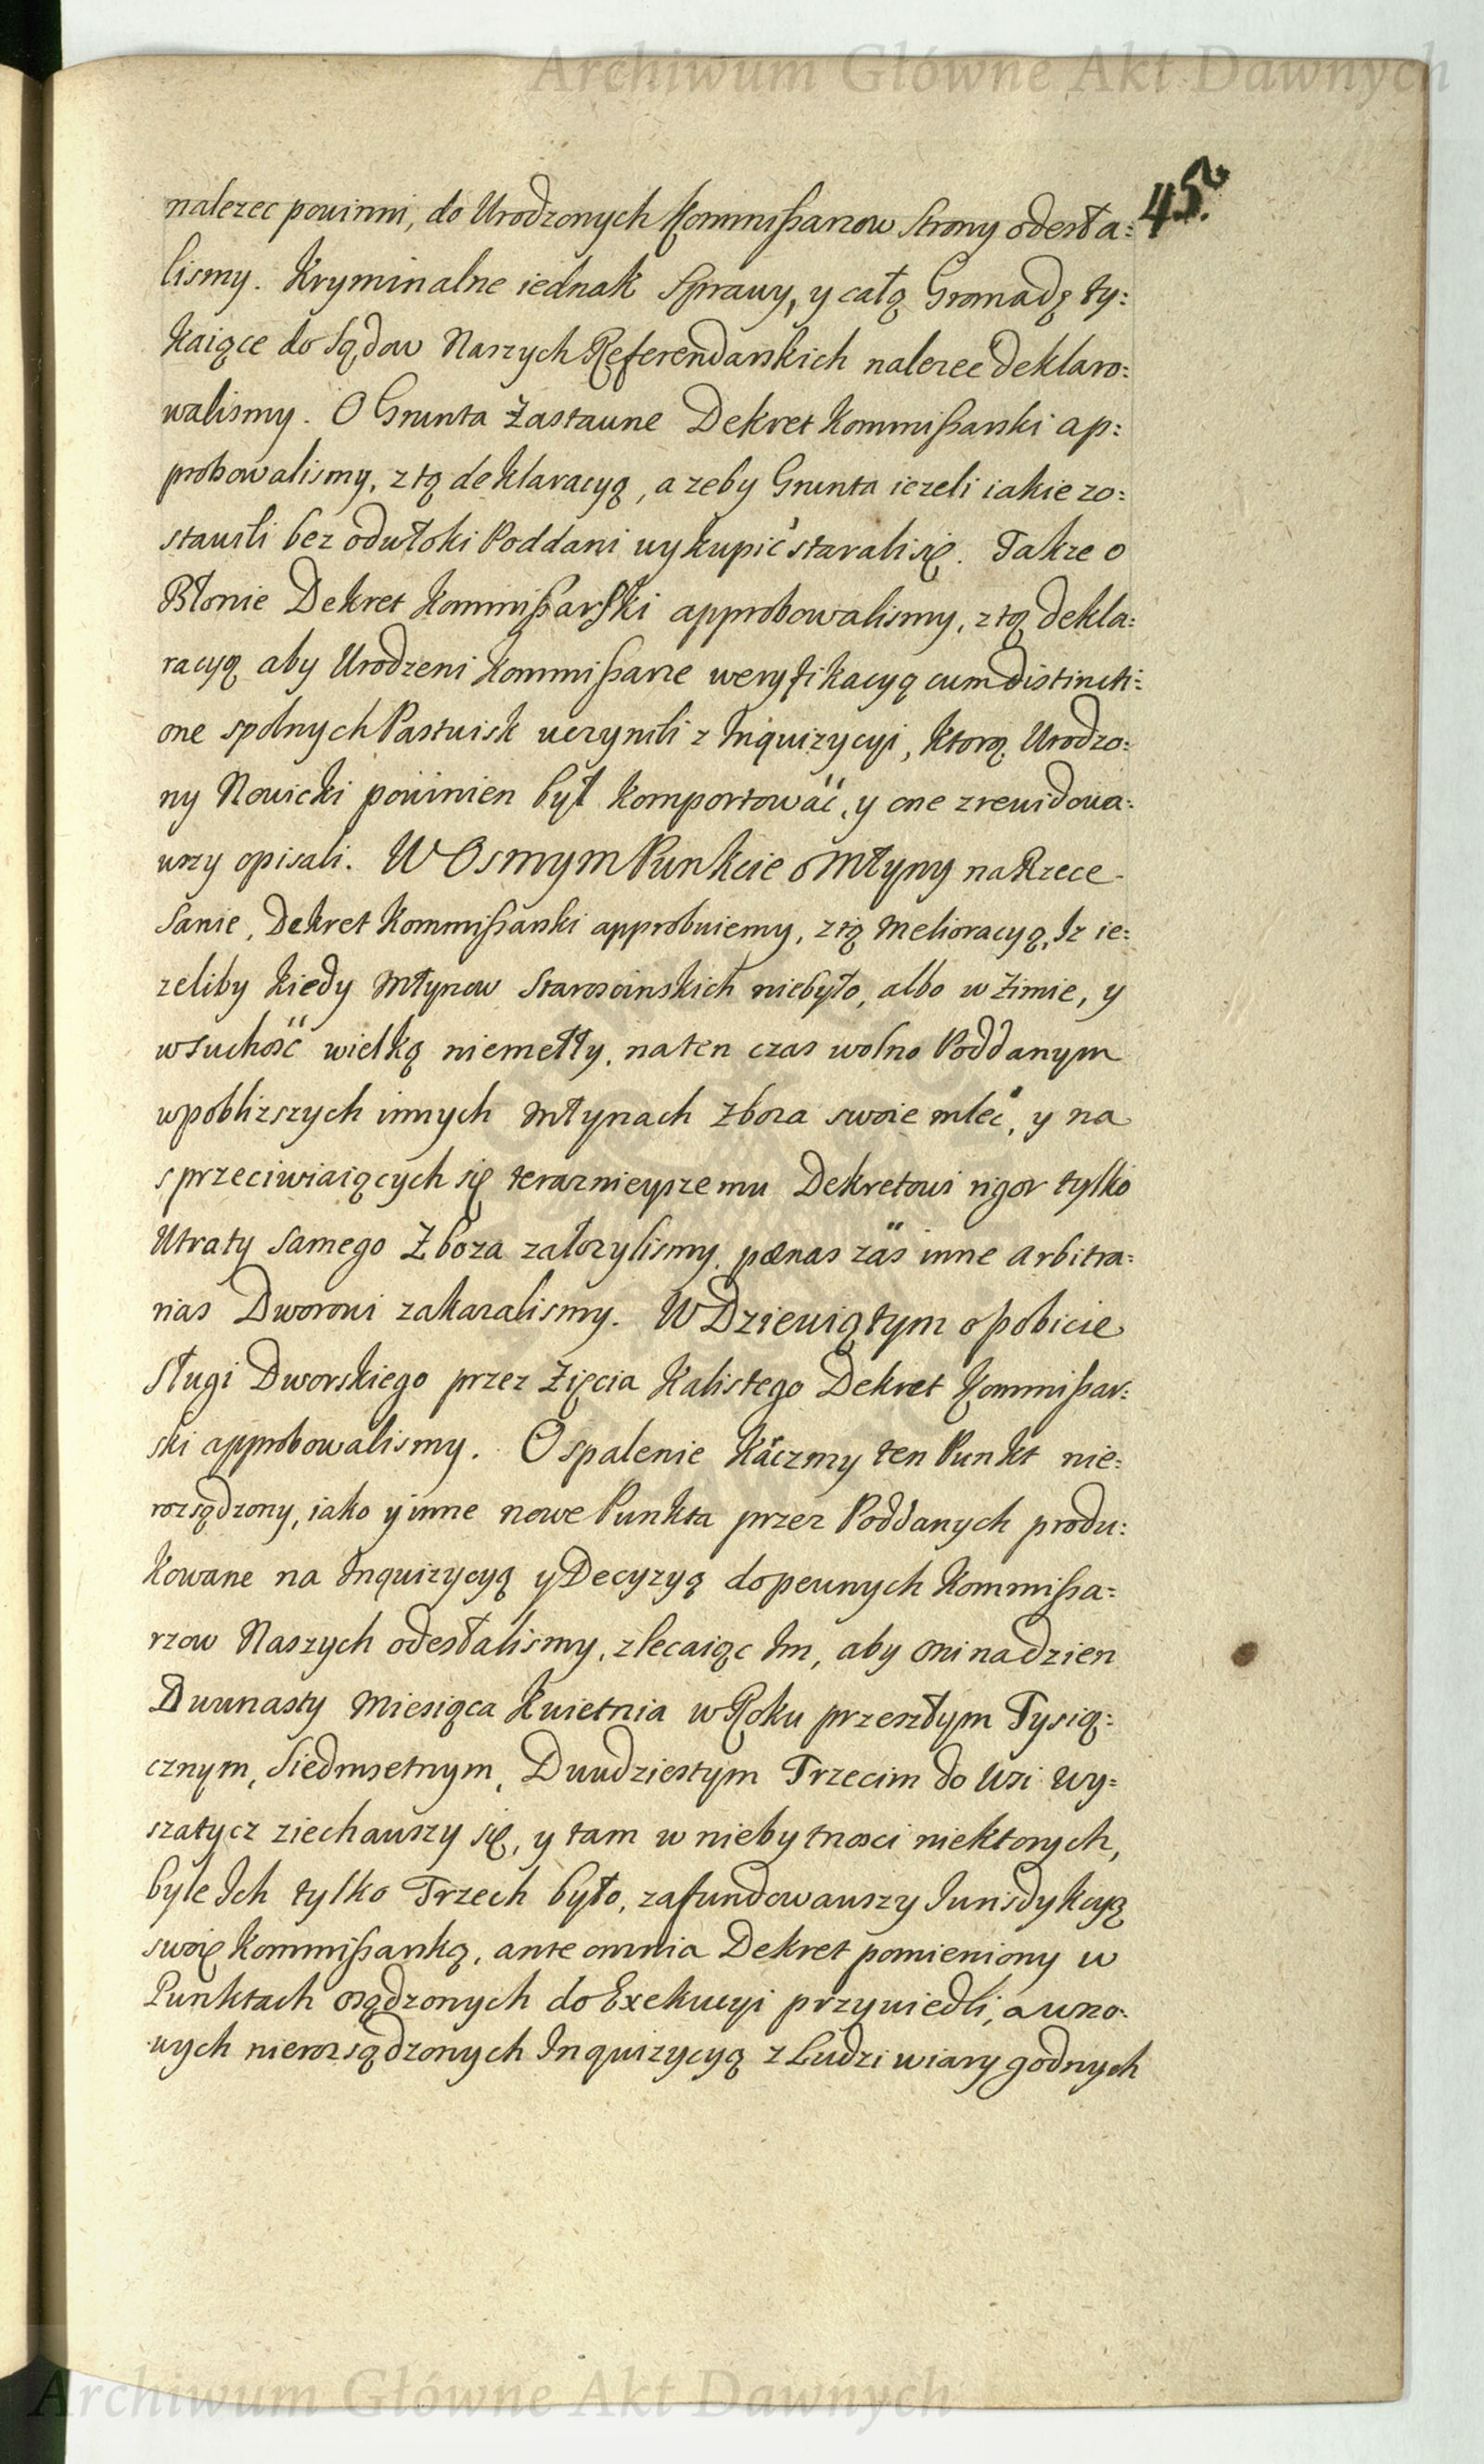 Archiwum Główne Akt Dawnych
45.
nalezec powinni, do Urodzonych Kommißarzow Strony odesła:
lismy. Kryminalne iednak Sprawy, y całą Gromadę ty:
kaiące do Sądow Naszych Referendarskich nalezec deklaro:
walismy. O Grunta Zastawne Dekret Kommißarski ap:
probowalismy, z tą deklaracyą, a zeby Grunta iezeli iakie zo:
stawili bez odwłoki Poddani wykupić starali się. Takze o
Błonie Dekret Kommißarski approbowalismy, z tą dekla:
racyą aby Urodzeni Kommißarze weryfikacyą cum distincti:
one spolnych Pastwisk uczynili z Inquizycyi, ktorą Urodzo:
ny Nowicki powinien był komportować, y one zrewidowa:
wszy opisali. W Osmym Punkcie o Młyny na Rzece
Sanie, Dekret Kommißarski approbuiemy, z tą melioracyą, Iz ie:
zeliby kiedy Młynow Staroscinskich niebyło, albo w Zimie, y
w suchość wielką niemełły, na ten czas wolno Poddanym
w poblizszych innych Młynach Zboza swoie mleć, y na
sprzeciwiaiących się teraznieyszemu Dekretowi rigor tylko
Utraty samego Zboza załozylismy, pænas zaś inne arbitra:
rias Dworowi zakazalismy. W Dziewiątym o pobicie
Sługi Dworskiego przez Zięcia Kalistego Dekret Kommißar:
ski approbowalismy. O spalenie Karczmy ten Punkt nie:
rozsądzony, iako y inne nowe Punkta przez Poddanych produ:
kowane na Inquizycyą y Decyzyą do pewnych Kommißa:
rzow Naszych odesłalismy, zlecaiąc Im, aby oni na dzien
Dwunasty Miesiąca Kwietnia w Roku przeszłym Tysią:
cznym, Siedmsetnym, Dwudziestym Trzecim do Wsi Wy:
szatycz ziechawszy się, y tam w niebytnosci niektorych,
byle Ich tylko Trzech było, zafundowawszy Iurisdykcyą
swoię Kommißarską, ante omnia Dekret pomieniony w
Punktach osądzonych do Exekucyi przywiedli, a w no:
wych nierozsądzonych Inquizycyą z Ludzi wiary godnych
Archiwum Główne Akt Dawnych